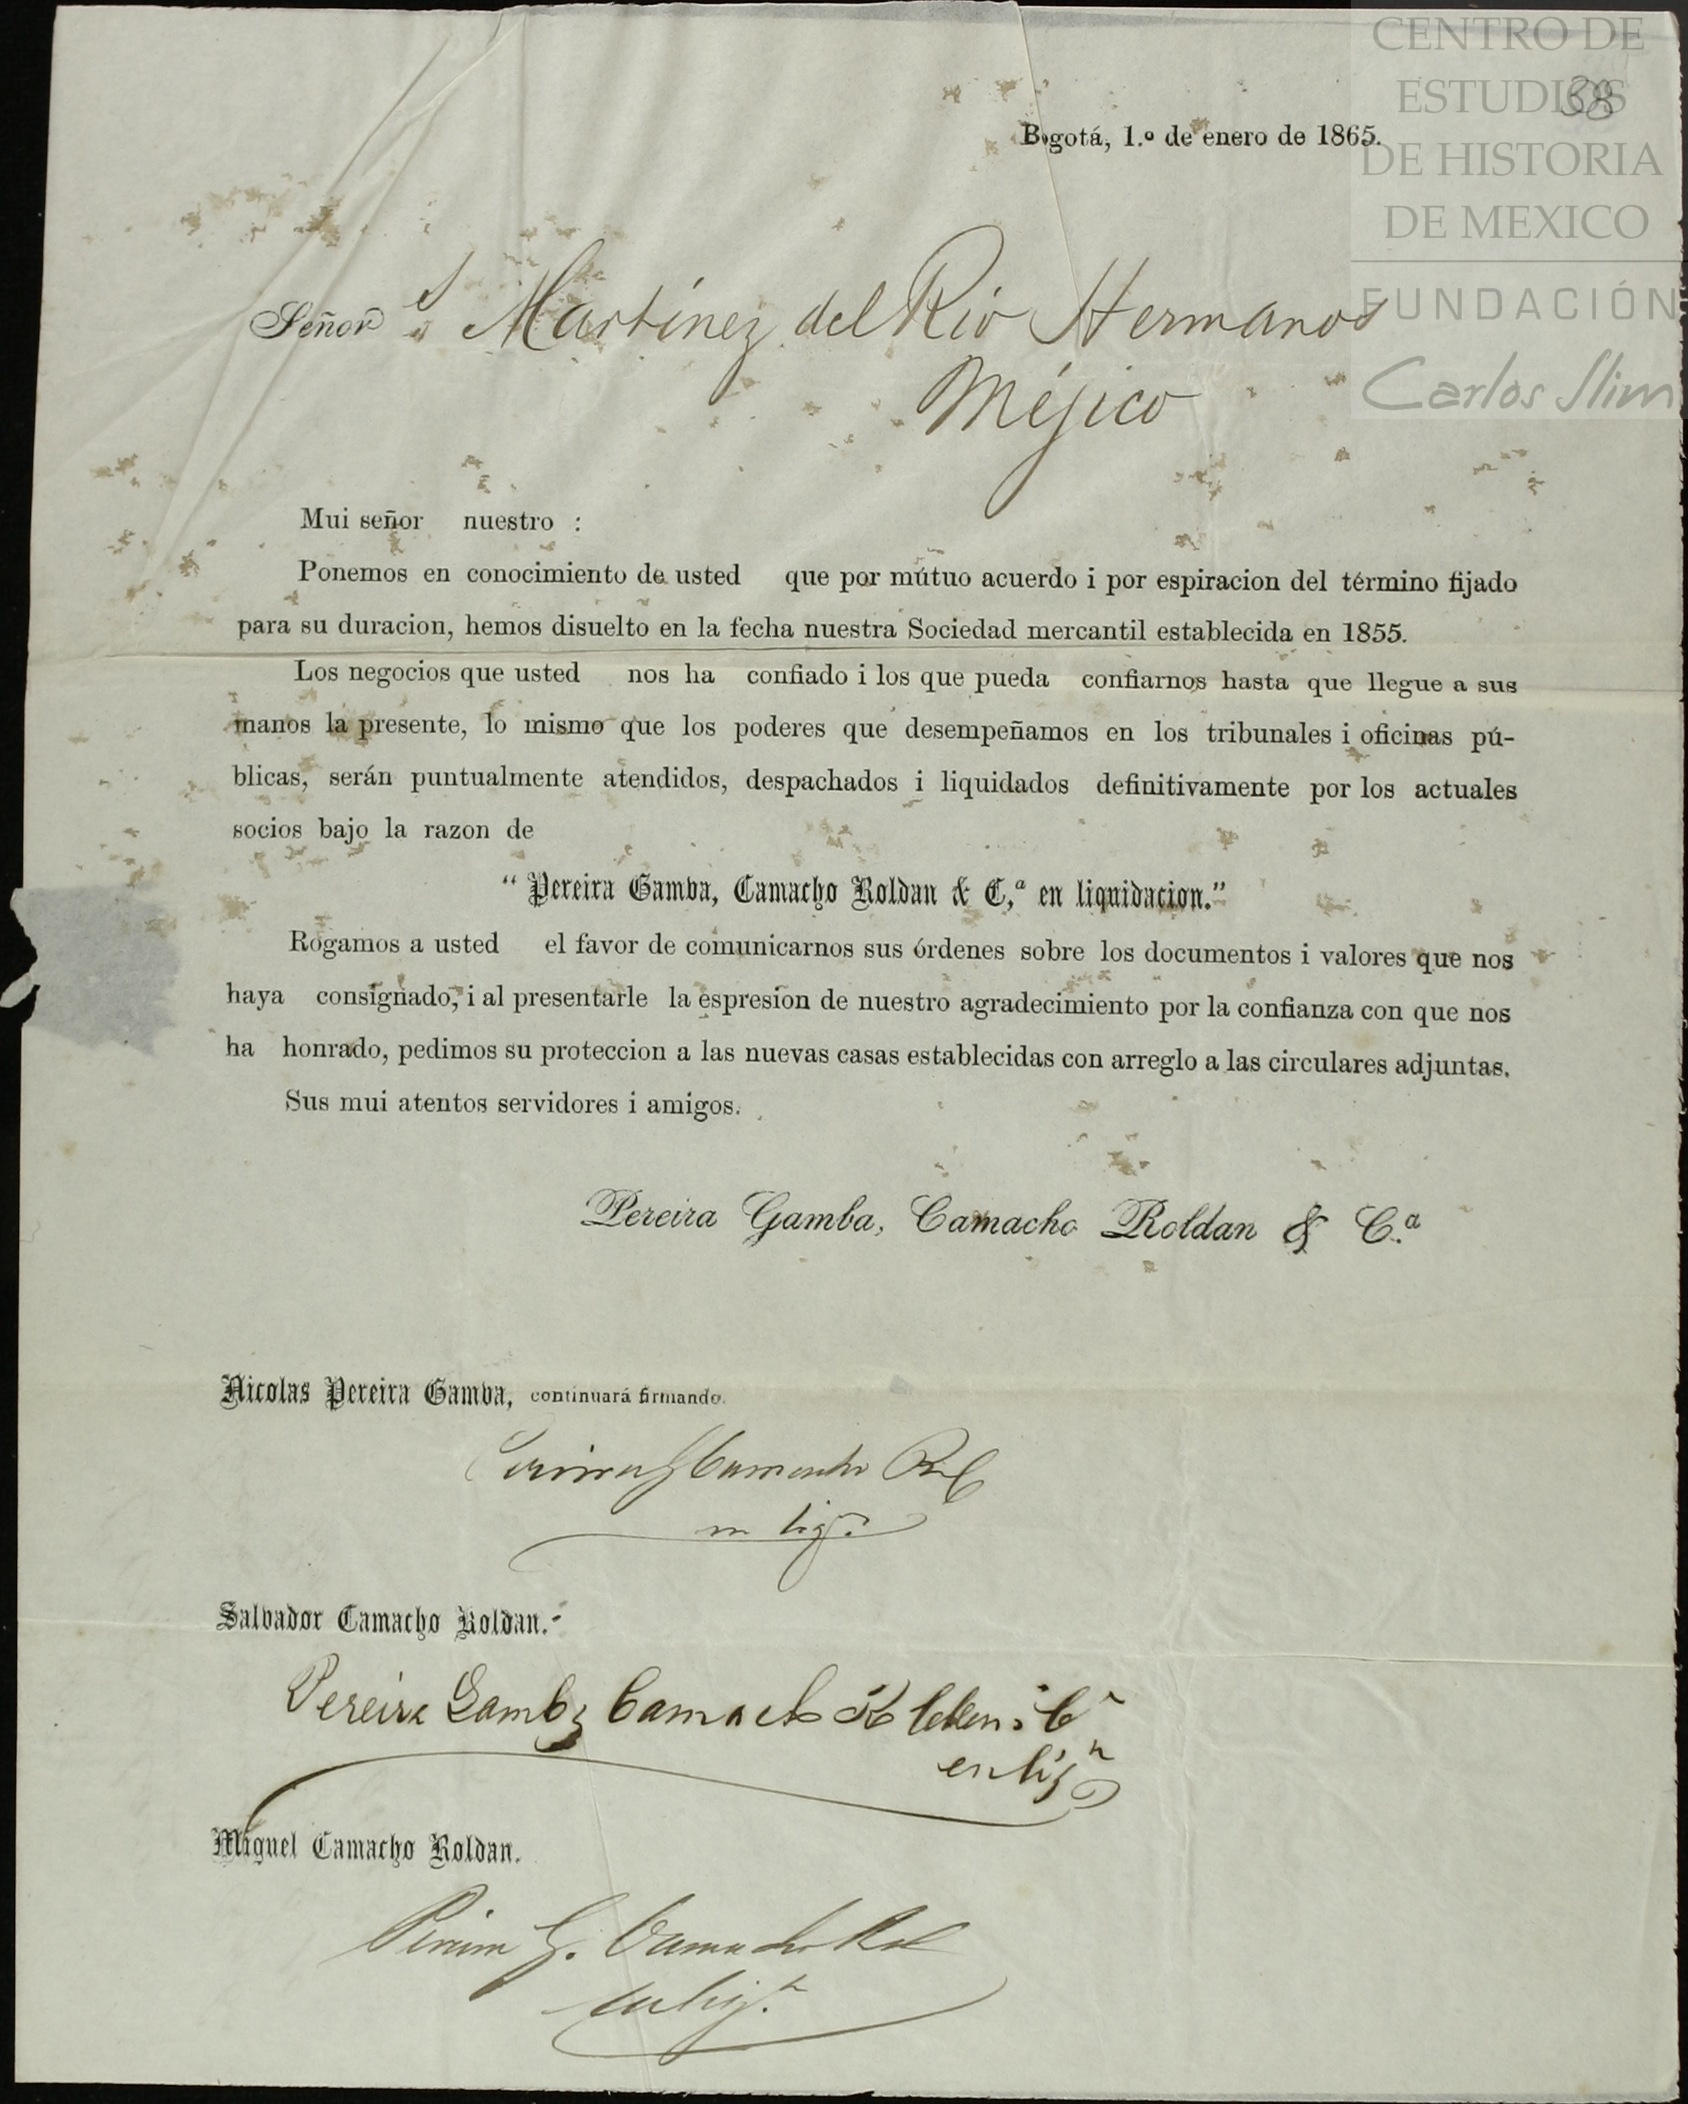 CENTRO DE
ESTUDIOS
38
DE HISTORIA
DE MEXICO
FUNDACIÓN
Carlos Slim
Bogotá, 1.º de enero de 1865.
Señor s Martínez del Rio Hermanos
Méjico
Mui señor nuestro :
Ponemos en conocimiento de usted que por mútuo acuerdo i por espiracion del término fijado
para su duracion, hemos disuelto en la fecha nuestra Sociedad mercantil establecida en 1855.
Los negocios que usted nos ha confiado i los que pueda confiarnos hasta que llegue a sus
manos la presente, lo mismo que los poderes que desempeñamos en los tribunales i oficinas pú-
blicas, serán puntualmente atendidos, despachados i liquidados definitivamente por los actuales
socios bajo la razon de
“Pereira Gamba, Camacho Roldan & C,ª en liquidacion.”
Rogamos a usted el favor de comunicarnos sus órdenes sobre los documentos i valores que nos
haya consignado, i al presentarle la espresion de nuestro agradecimiento por la confianza con que nos
ha honrado, pedimos su proteccion a las nuevas casas establecidas con arreglo a las circulares adjuntas.
Sus mui atentos servidores i amigos.
Pereira Gamba, Camacho Roldan & C.ª
Nicolas Pereira Gamba, continuará firmando.
Camacho
en liqn.
Salvador Camacho Roldan.
Pereira Gamba Camacho Roldan & Cª
en liqn
Miguel Camacho Roldan.
Pereira G. Camacho Rol
en liqn.